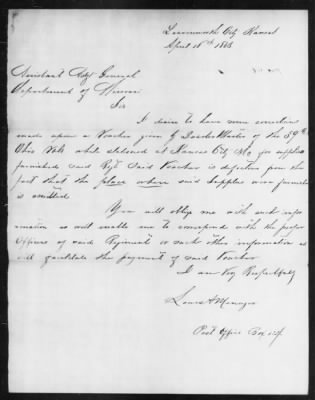 Leavenworth City Kansas
April 16th 1865
Assistant Adjt General
Department of Missouri
Sir
I desire to have some correction
made upon a Voucher given by Quarter Master of the 59th
Ohio Vols while stationed at Kansas City Mo for supplies
furnished said Regt Said Voucher is defective from the
fact that the place where said Supplies were furnished
is omitted.
You will oblige me with such infor
mation as will enable me to correspond with the proper
Officers of said Regiment or such other information as
will facilitate the payment of said Voucher
I am Very Respectfully
Post Office Box